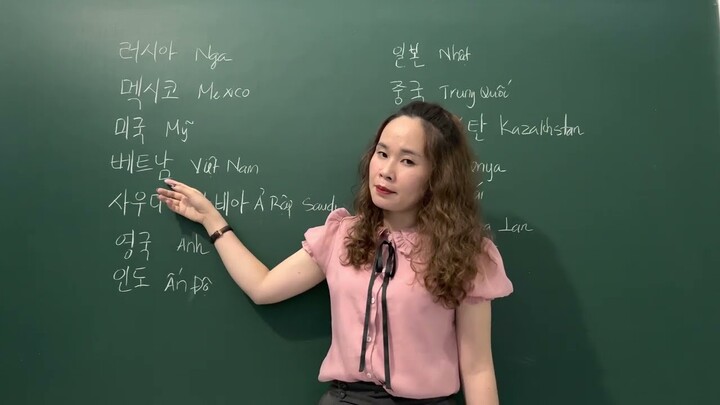 러시아 Nga
멕시코 Mexico
미국 Mỹ
베트남 Việt Nam
사우 베아 Ả Rập Saudi
영국 Anh
인도 Ấn Độ
일본 Nhật
중국 Trung Quốc
탄 Kazakhstan